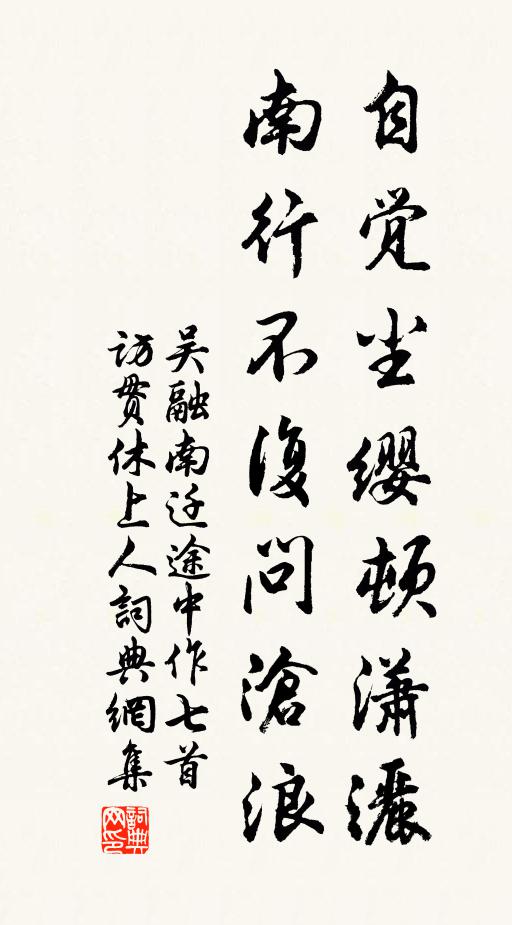 自觉尘缨顿潇灑
南行不復问滄浪
吴融南迁途中作七首
访贯休上人詞典網集
詞典
网印